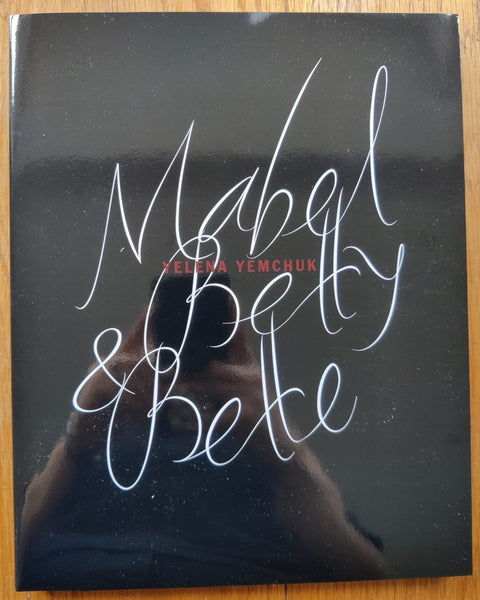 Mabel
YELENA YEMCHUK
Betty
& Bette